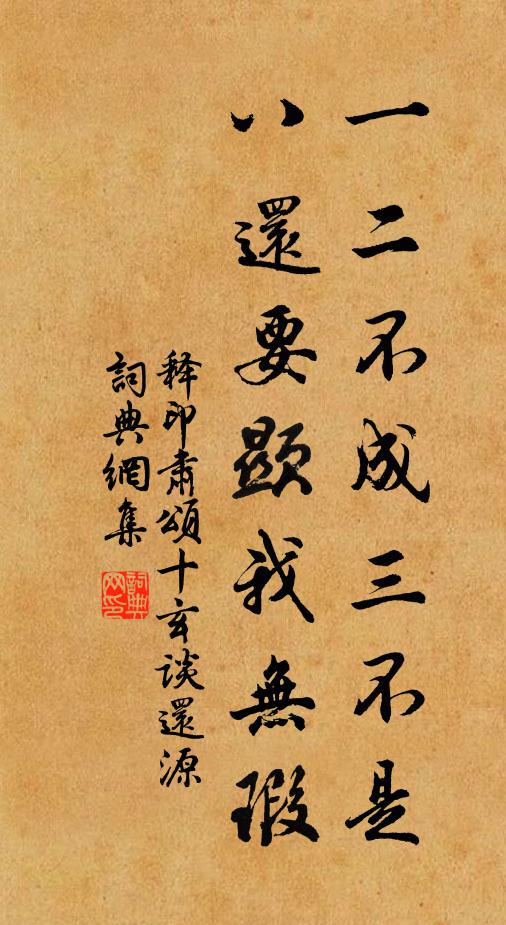 一二不成三不是
八還要顯我無瑕
释印肅頌十玄談還源
詞典網集
詞典网印